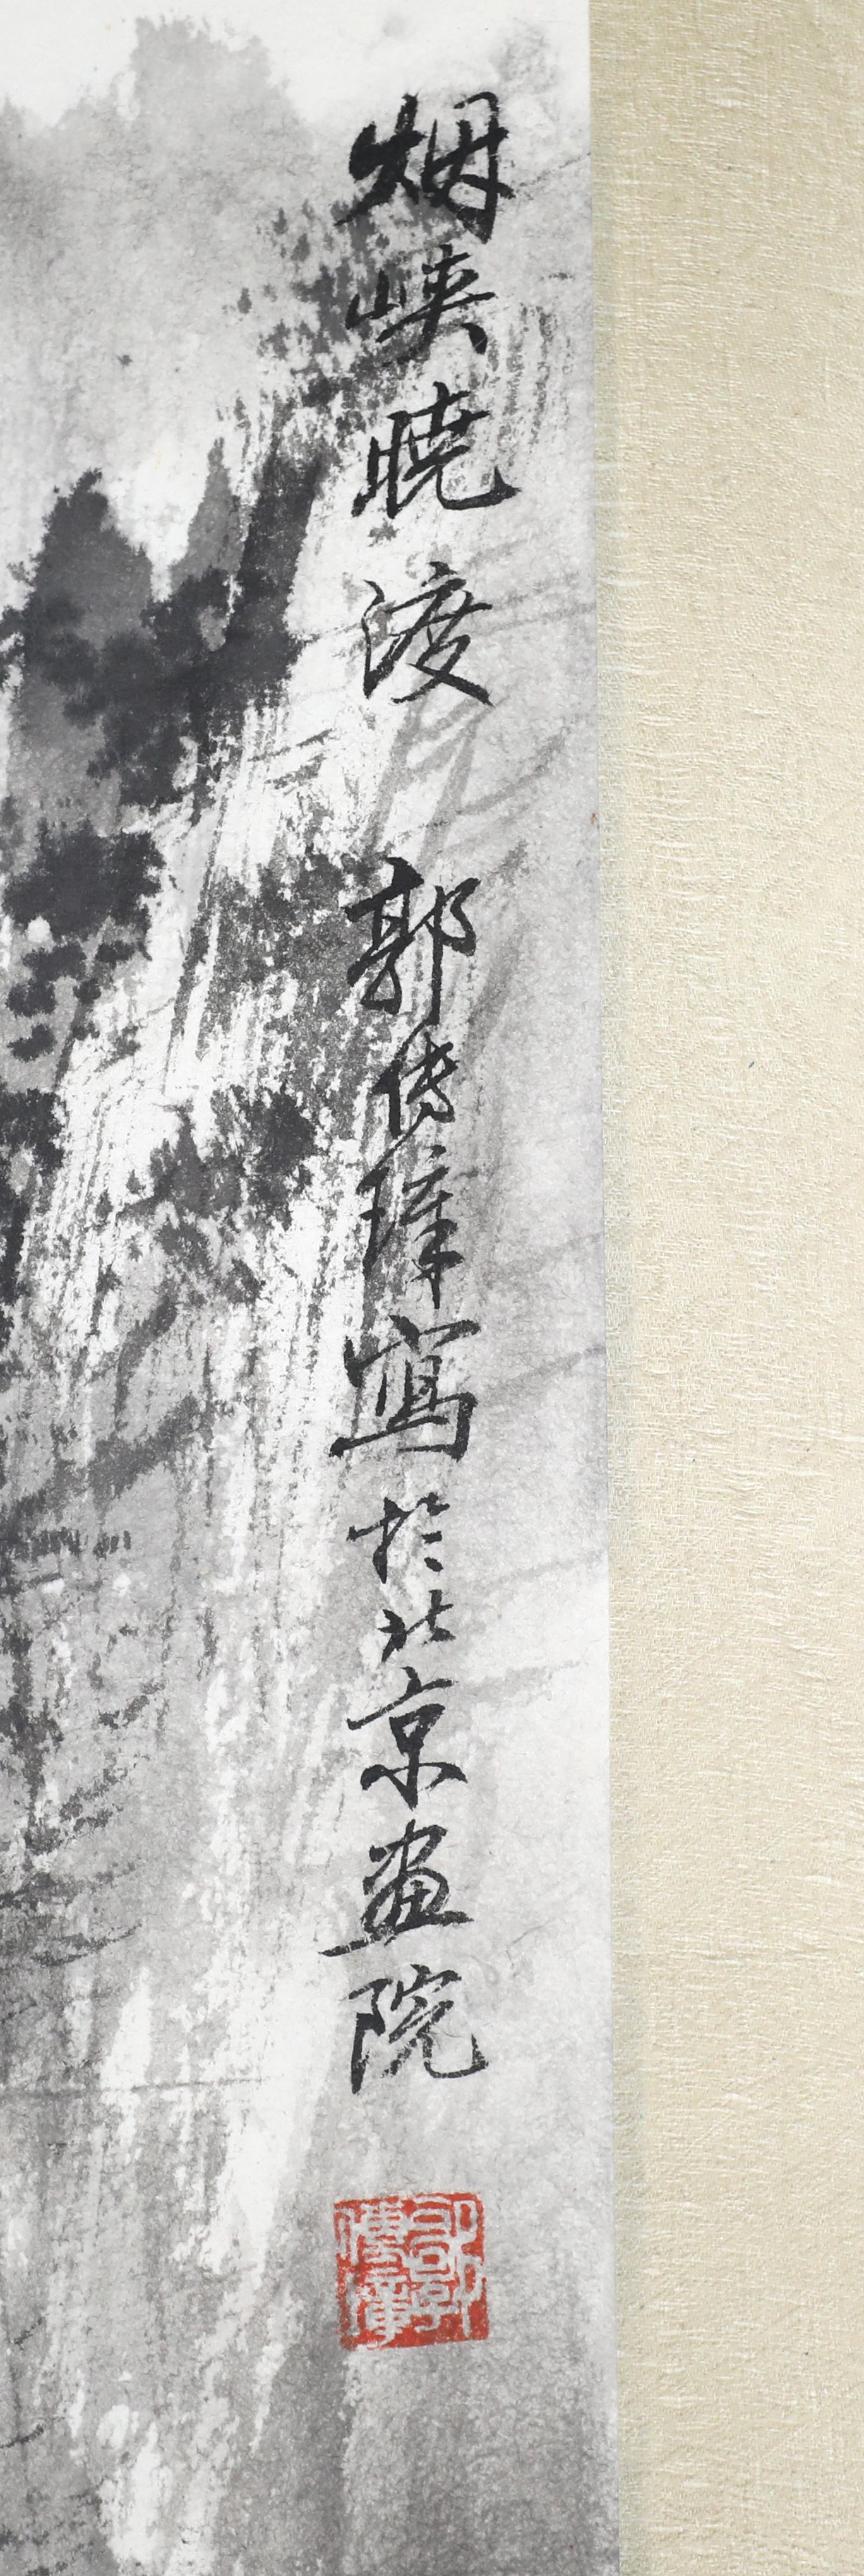 烟峡晓渡 郭传璋寫於北京画院
郭傳璋